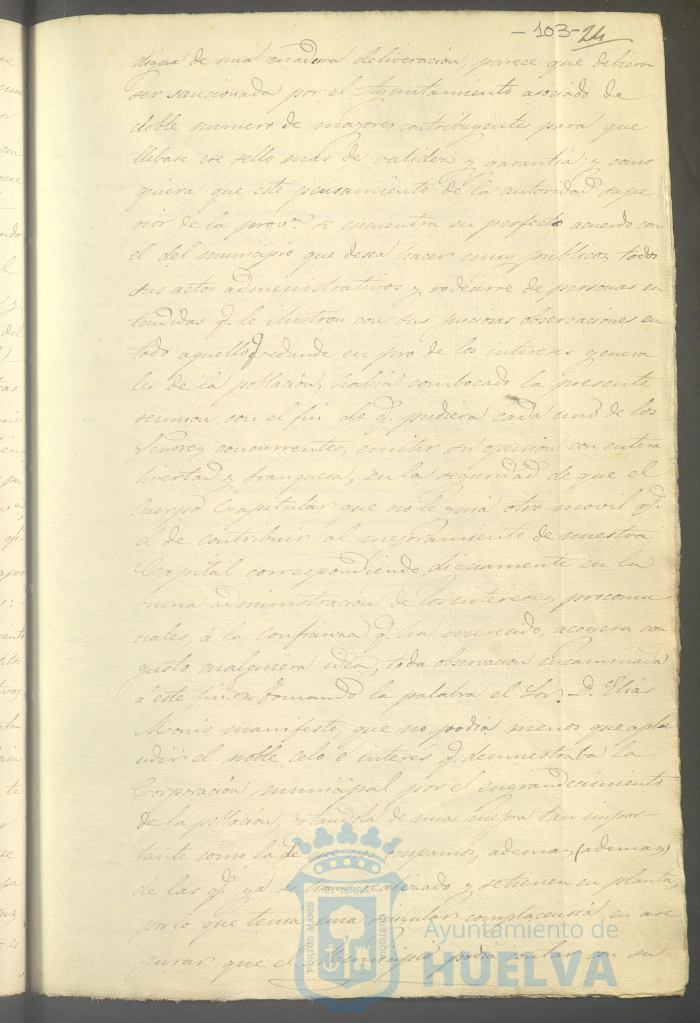 - 103 - 24
digna de una madura deliveración, parece que debiera
ser sancionada por el Ayuntamiento asociado de
doble numero de mayores contribuyentes para que
llebase ese sello mas de validez y garantia; y como
quiera que este pensamiento de la autoridad supe
rior de la prov.ª se encuentra en perfecto acuerdo con
el del municipio que desea hacer muy publicos todos
sus actos administrativos y rodearse de personas en
tendidas q.e le ilustren con sus juiciosas observaciones en
todo aquello q.e redunde en pro de los intereses genera
les de la población, habia combocado la presente
reunion con el fin de q.e pudiera cada uno de los
Señores concurrentes, emitir su opinion con entera
livertad y franquesa, en la seguridad de que el
Cuerpo Capitular que no le guia otro movil q.e
el de contribuir al mejoramiento de nuestra
Capital correspondiendo dignamente en la
buena administración de los intereses procomu
nales, á la confianza q.e ha merecido, acogera con
gusto cualquiera idea, toda observacion encaminada
á este fin. Tomando la palabra el Sor. D. Elias
manifesto, que no podia menos que aplau
udir el noble celo é interes q.e demuestraba la
Corporación municipal por el engrandecimiento
de la población, dotandola de una mejora tan impor-
tante como la de que nos ocupamos, ademas (ademas)
de las q.e ya se han realizado y se tienen en planta,
por lo que tenia una singular complacensia en ase
gurar que el Municipio podia contar con su
Ayuntamiento de
HUELVA
PORTUS MARIS
ET TERRÆ
CUSTODIA